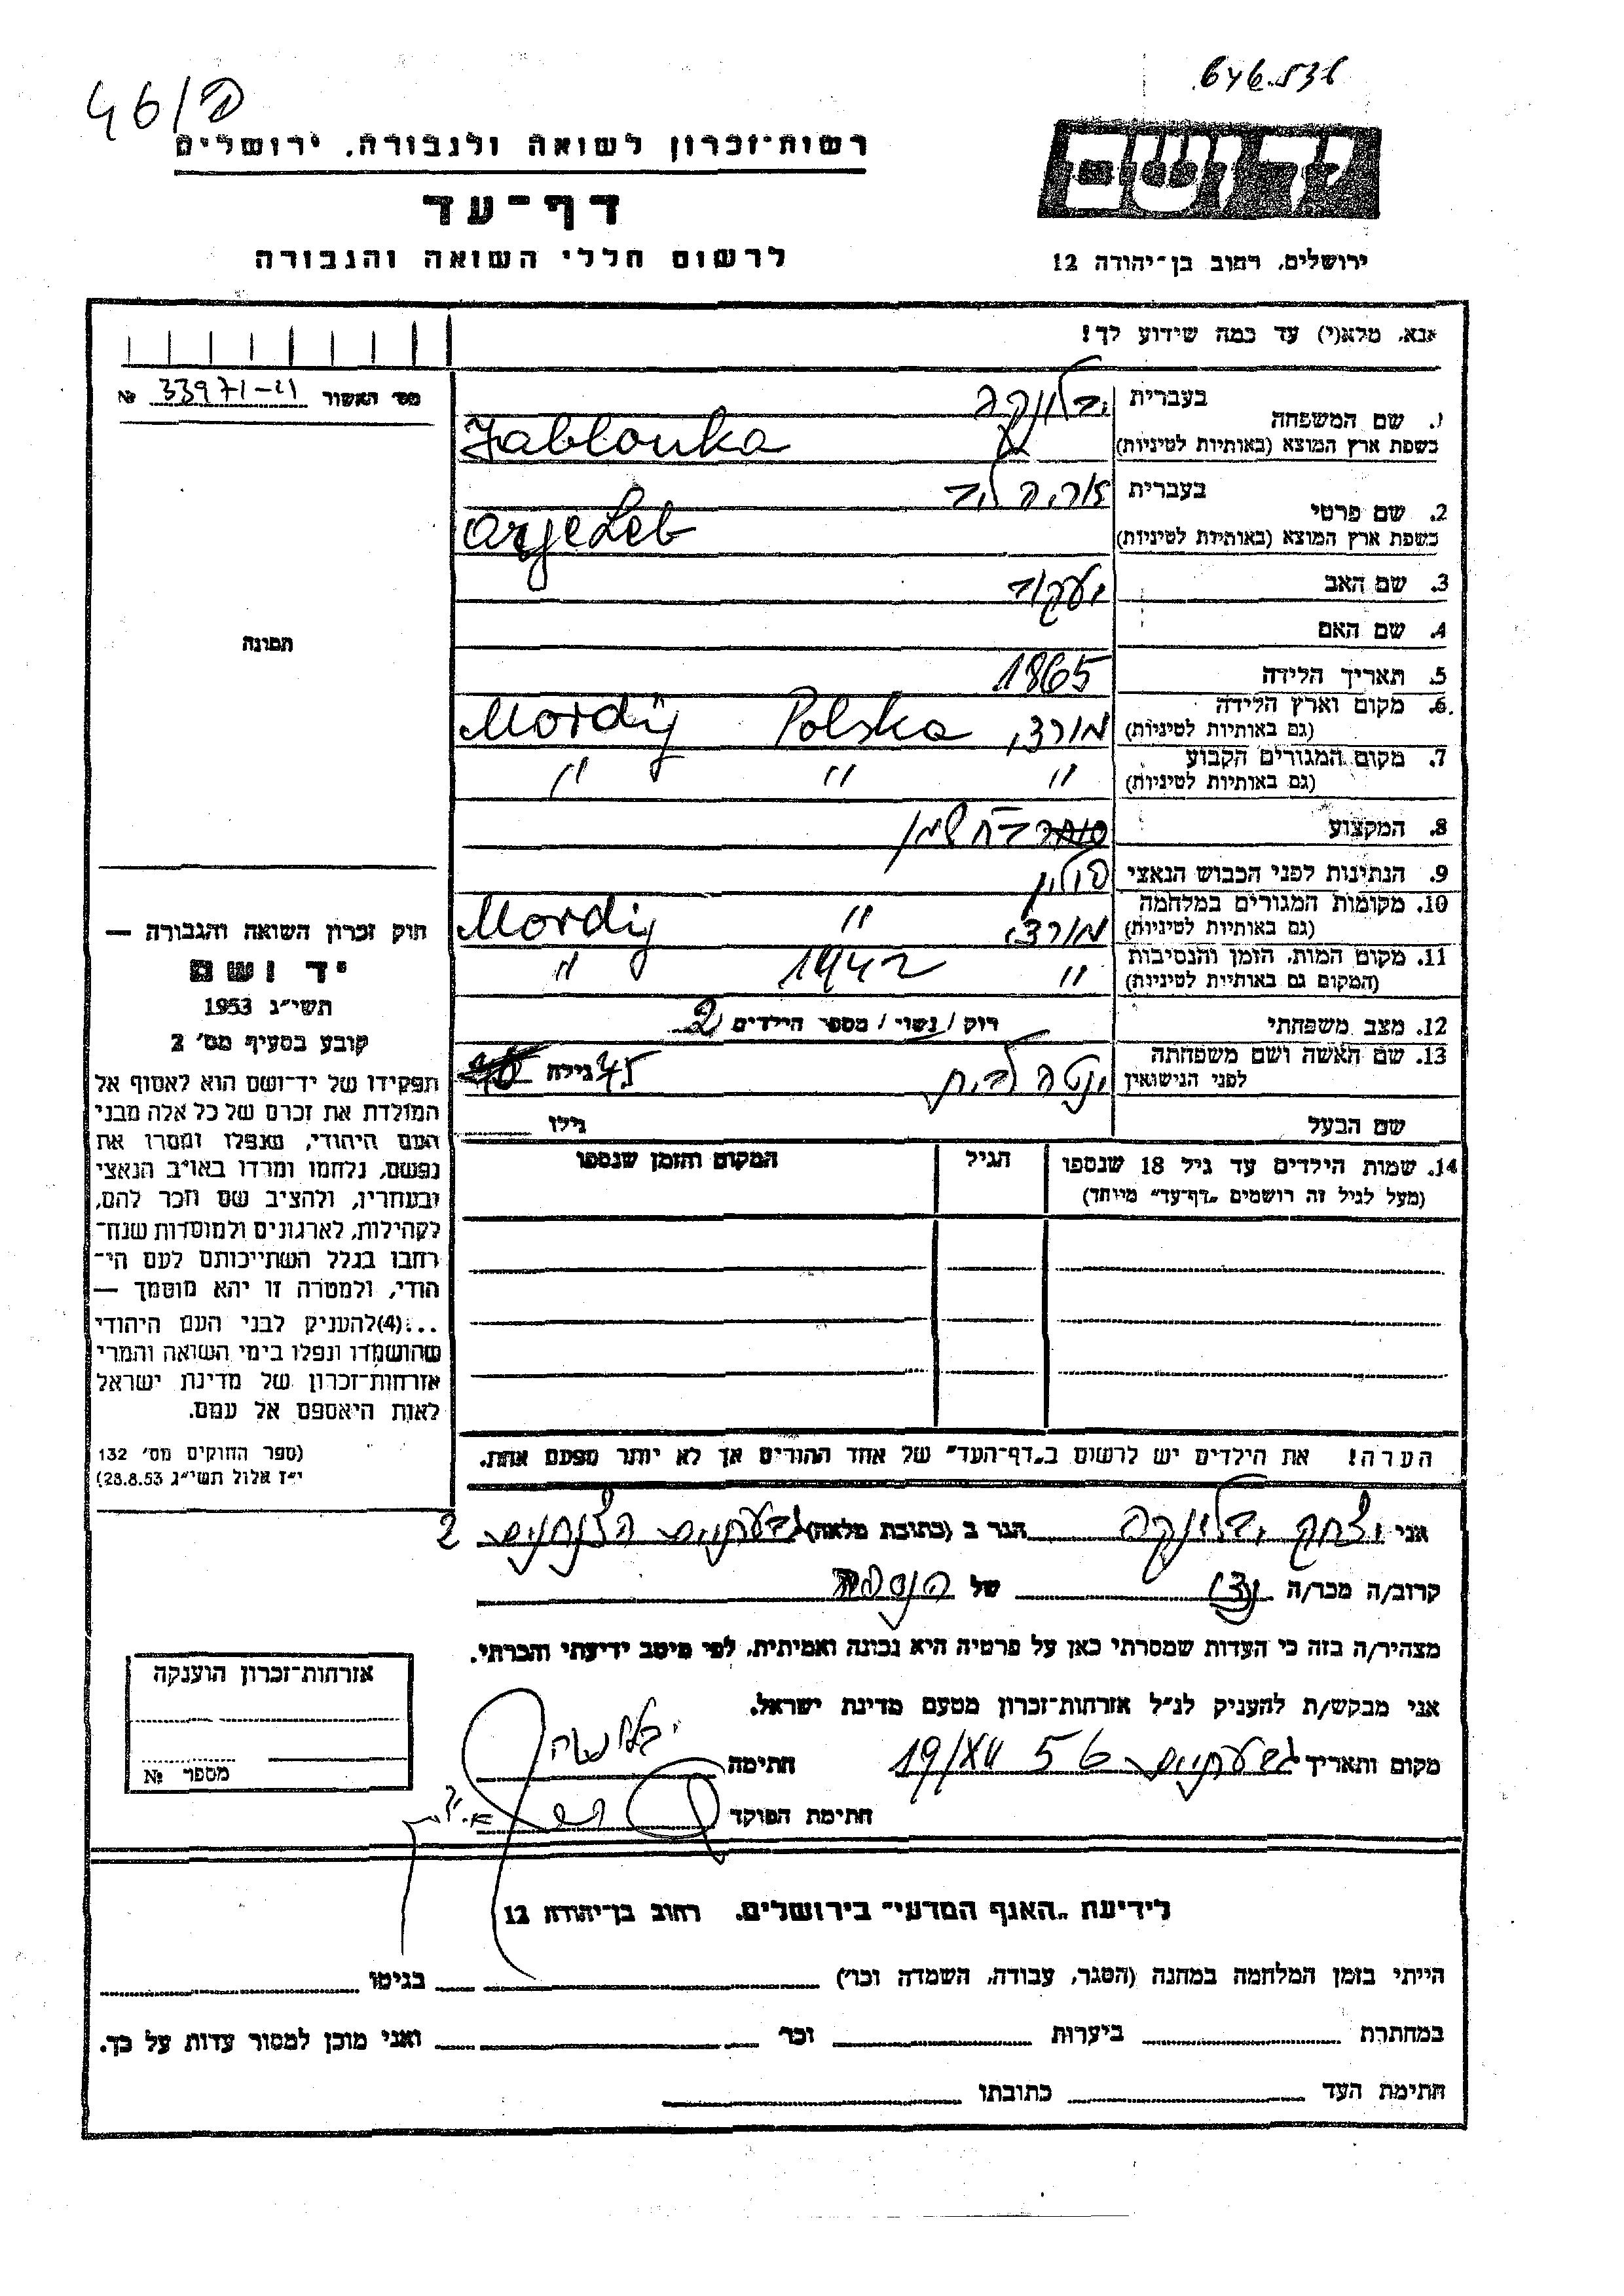 46/פ
רשות־זכרון לשואה ולגבורה, ירושלים
דף־עד
לרשום חללי השואה והגבורה
יד ושם
ירושלים, רחוב בן־יהודה 12
אנא, מלא(י) עד כמה שידוע לך!
מס׳ האשור № 33971-21
1. שם המשפחה
בעברית יבלונקה
בשפת ארץ המוצא (באותיות לטיניות) Jablonka
2. שם פרטי
בעברית אריה ליב
בשפת ארץ המוצא (באותיות לטיניות) Arje Leb
3. שם האב יעקוב
4. שם האם
5. תאריך הלידה 1865
6. מקום וארץ הלידה מורדי, Polska Mordÿ
(גם באותיות לטיניות)
7. מקום המגורים הקבוע " " "
(גם באותיות לטיניות)
8. המקצוע
9. הנתינות לפני הכבוש הנאצי פולין
10. מקומות המגורים במלחמה מורדי, " Mordÿ
(גם באותיות לטיניות)
11. מקום המות, הזמן והנסיבות " 1942 "
(המקום גם באותיות לטיניות)
12. מצב משפחתי רוק / נשוי / מספר הילדים 2
13. שם האשה ושם משפחתה
לפני הנישואין גילה 45
שם הבעל גילו
14. שמות הילדים עד גיל 18 שנספו
(מעל לגיל זה רושמים „דף־עד” מיוחד)
הגיל
המקום והזמן שנספו
הערה! את הילדים יש לרשום ב„דף־העד” של אחד ההורים אך לא יותר מפעם אחת.
תמונה
חוק זכרון השואה והגבורה —
יד ושם
תשי״ג 1953
קובע בסעיף מס׳ 2
תפקידו של יד־ושם הוא לאסוף אל
המולדת את זכרם של כל אלה מבני
העם היהודי, שנפלו ומסרו את
נפשם, נלחמו ומרדו באויב הנאצי
ובעוזריו, ולהציב שם וזכר להם,
לקהילות, לארגונים ולמוסדות שנח־
רבו בגלל השתייכותם לעם הי־
הודי, ולמטרה זו יהא מוסמך —
...(4) להעניק לבני העם היהודי
שהושמדו ונפלו בימי השואה והמרי
אזרחות־זכרון של מדינת ישראל
לאות היאספם אל עמם.
(ספר החוקים מס׳ 132
י״ז אלול תשי״ג 28.8.53)
אני יצחק יבלונקה הגר ב (כתובת מלאה) גבעתיים הצנחנים 2
קרוב/ה מכר/ה נכד של הנספה
מצהיר/ה בזה כי העדות שמסרתי כאן על פרטיה היא נכונה ואמיתית, לפי מיטב ידיעתי והכרתי.
אני מבקש/ת להעניק לנ״ל אזרחות־זכרון מטעם מדינת ישראל.
מקום ותאריך גבעתיים 19/XII 56 חתימה
חתימת הפוקד
אזרחות־זכרון הוענקה
מספר №
לידיעת „האגף המדעי” בירושלים, רחוב בן־יהודה 12
הייתי בזמן המלחמה במחנה (הסגר, עבודה, השמדה וכו׳) בגיטו
במחתרת ביערות וכו׳ ואני מוכן למסור עדות על כך.
חתימת העד כתובתו